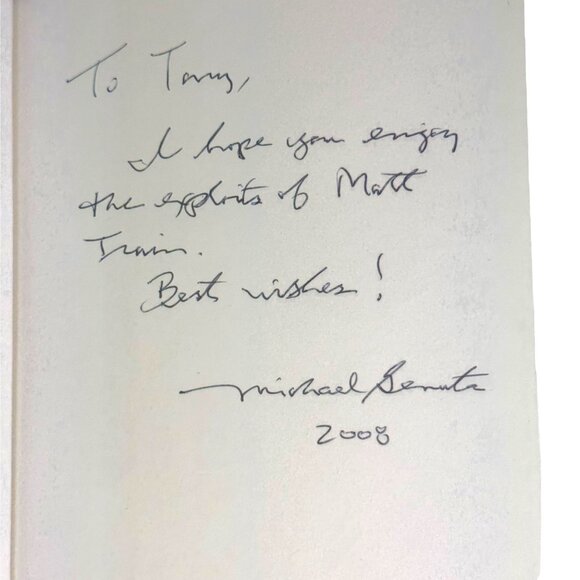 To Tony,
I hope you enjoy
the exploits of Matt
Train.
Best wishes!
Michael
2008